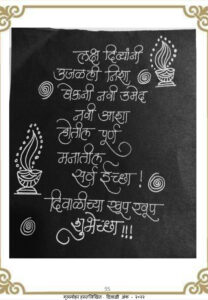 लक्ष दिव्यांनी
उजळली निशा
घेऊनी नवी उमेद
नवी आशा
होतील पूर्ण
मनातील
सर्व ईच्छा !
दिवाळीच्या खूप खूप
शुभेच्छा !!!
दिवाळी अंक - २०२२